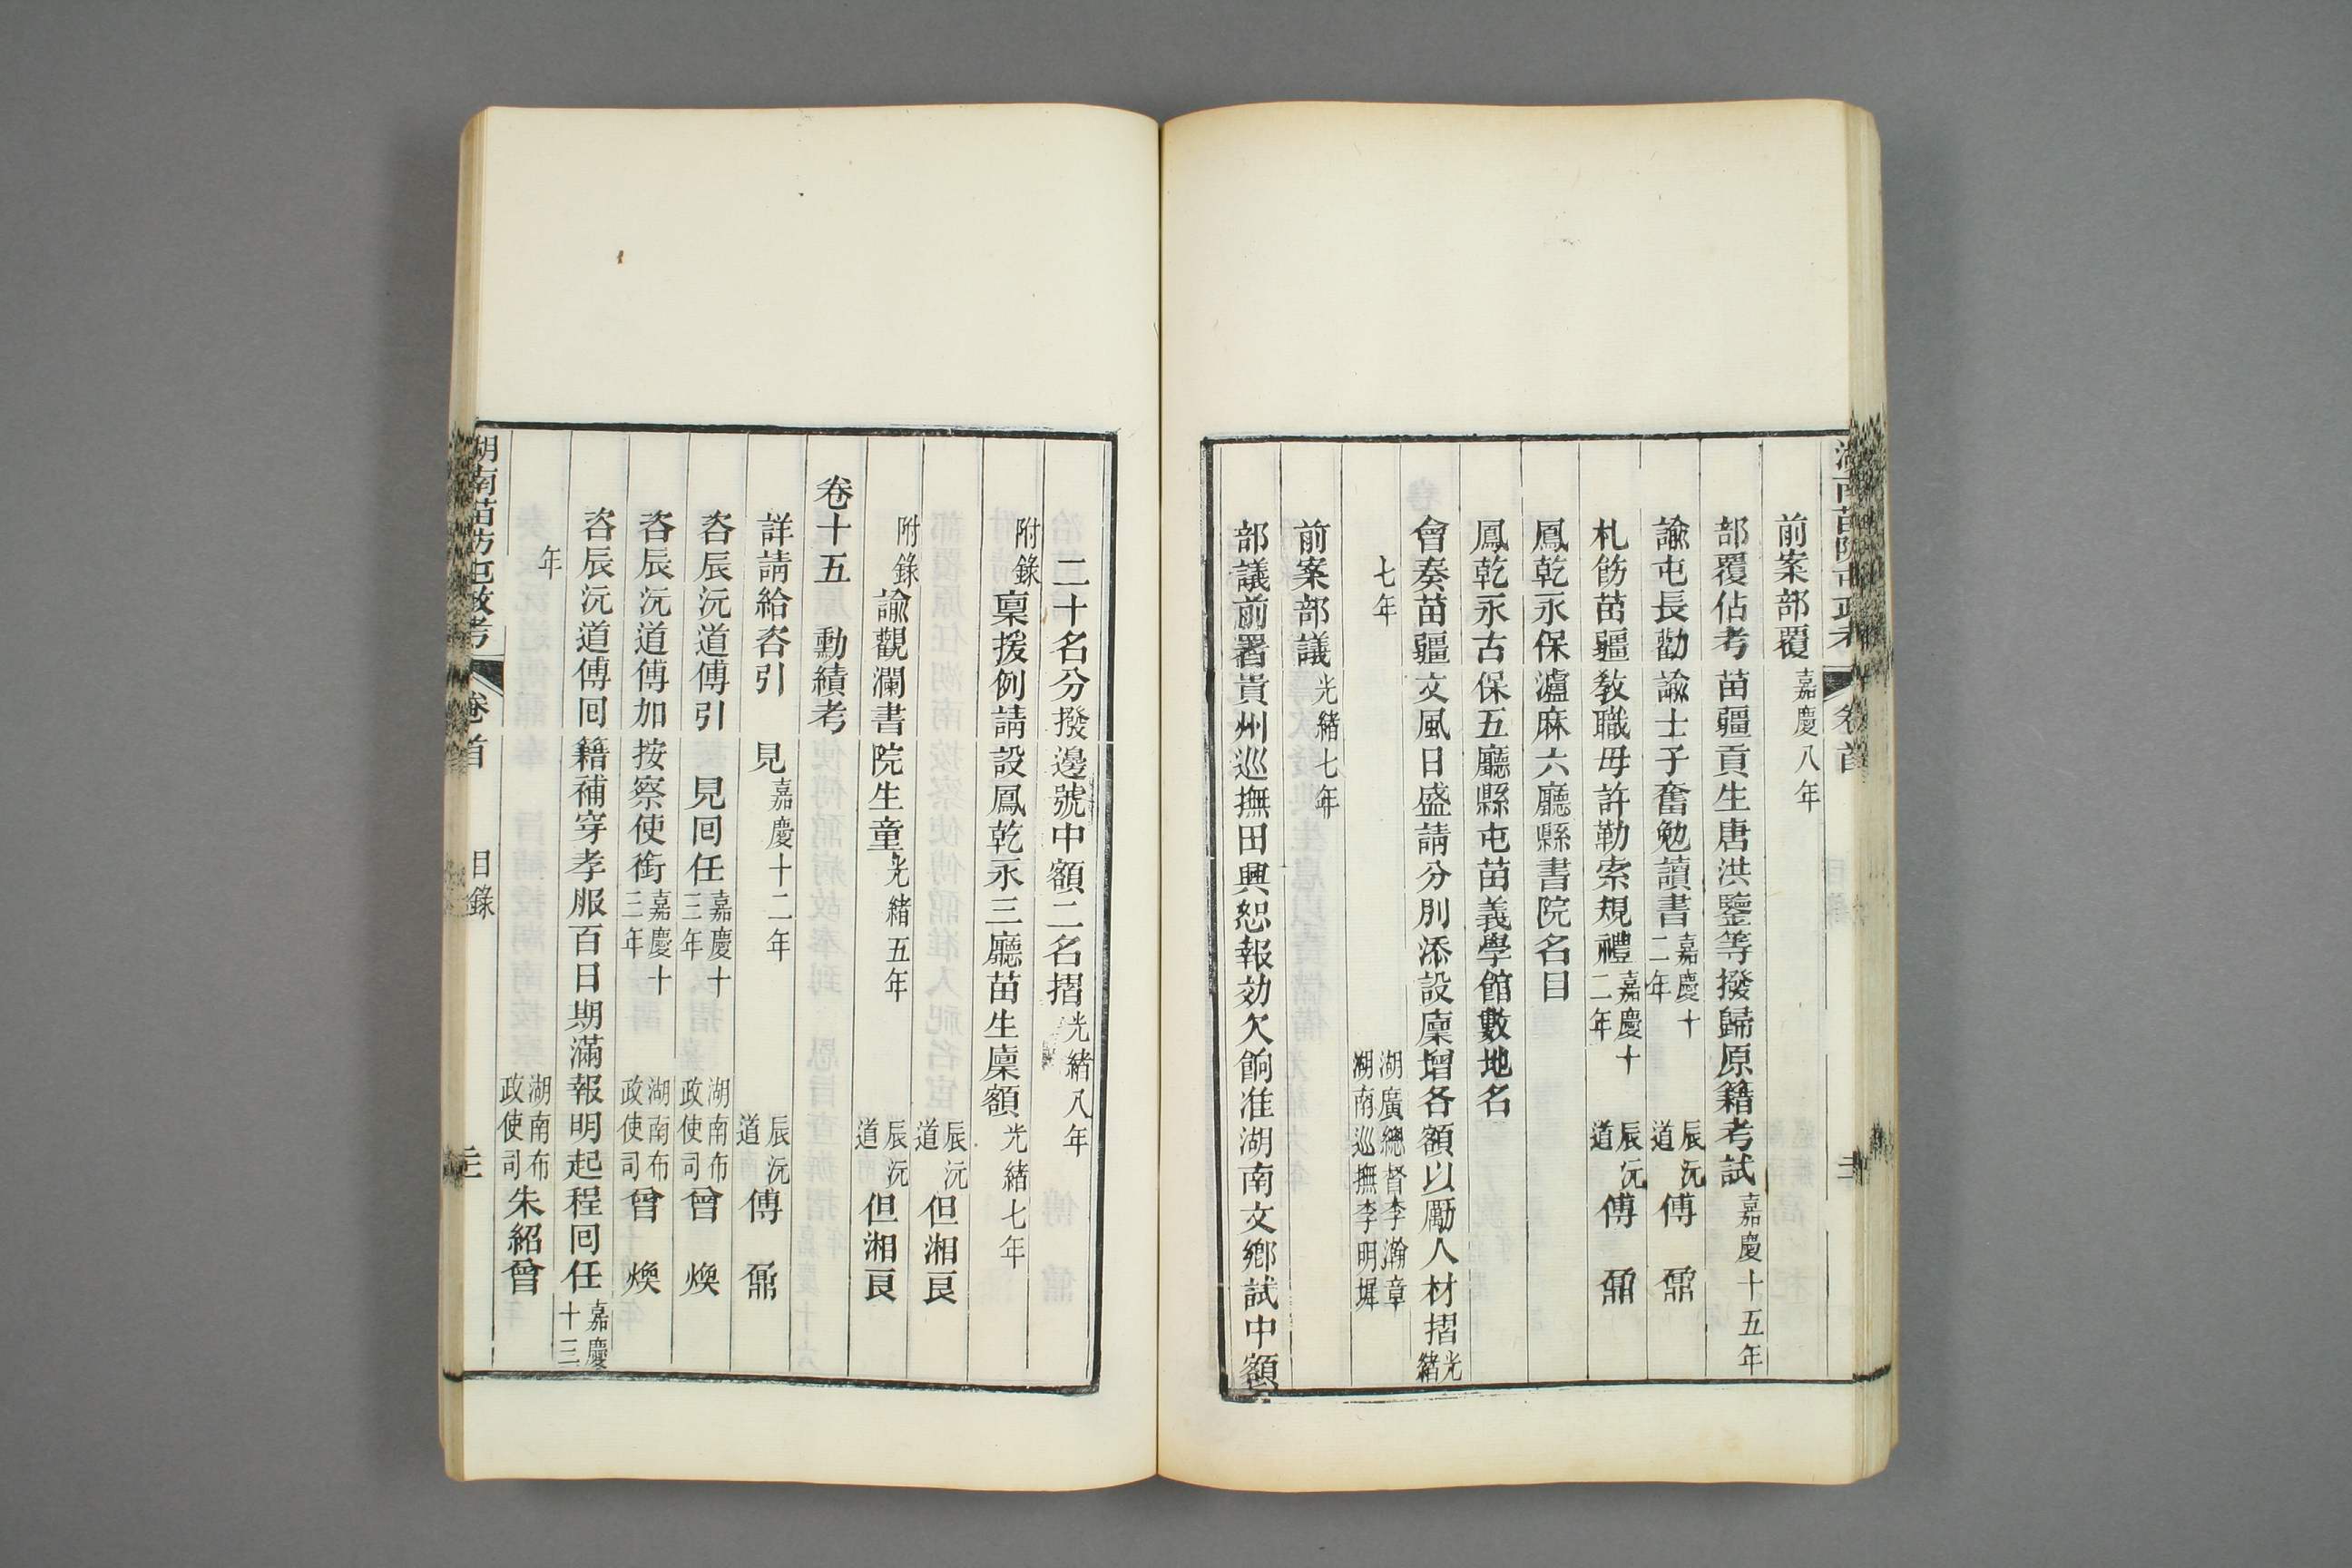 前案部覆嘉慶八年
部覆佔考苗疆貢生唐洪鑒等撥歸原籍考試嘉慶十五年
諭屯長勸諭士子奮勉讀書嘉慶十二年辰沅道傅鼐
札飭苗疆教職毋許勒索規禮嘉慶十二年辰沅道傅鼐
鳳乾永保瀘麻六廳縣書院名目
鳳乾永古保五廳縣屯苗義學館數地名
會奏苗疆文風日盛請分別添設廩增各額以勵人材摺光緒
七年湖廣總督李瀚章湖南巡撫李明墀
前案部議光緒七年
部議前署貴州巡撫田興恕報効欠餉准湖南文鄉試中額
二十名分撥邊號中額二名摺光緒八年
附錄稟援例請設鳳乾永三廳苗生廩額光緒七年
辰沅道但湘良
附錄諭觀瀾書院生童光緒五年辰沅道但湘良
卷十五勳績考
詳請給咨引見嘉慶十二年辰沅道傅鼐
咨辰沅道傅引見回任嘉慶十三年湖南布政使司曾煥
咨辰沅道傅加按察使銜嘉慶十三年湖南布政使司曾煥
咨辰沅道傅回籍補穿孝服百日期滿報明起程回任嘉慶十三
年湖南布政使司朱紹曾
湖南苗防屯政考卷首目錄